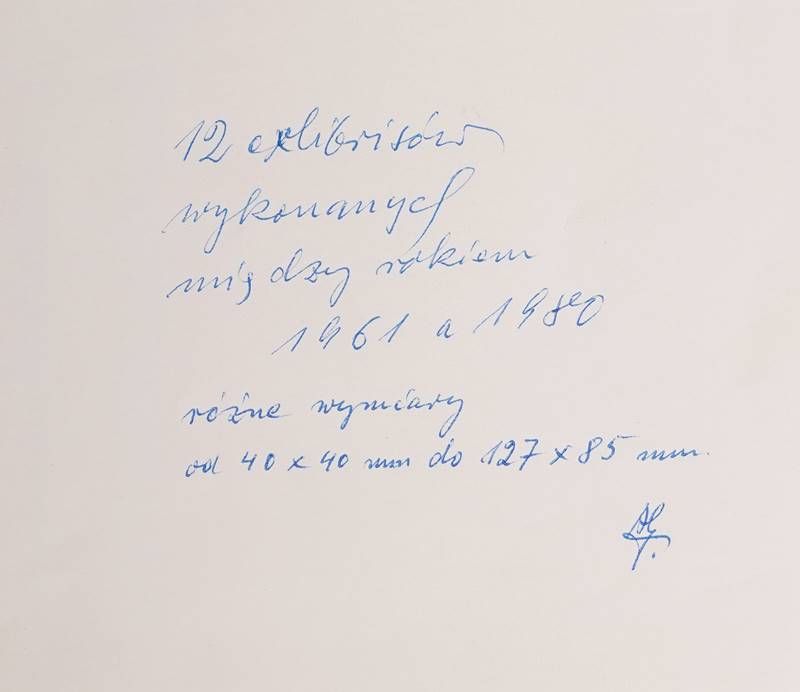 12 exlibrisów
wykonanych
między rokiem
1961 a 1980
różne wymiary
od 40 x 40 mm do 127 x 85 mm.